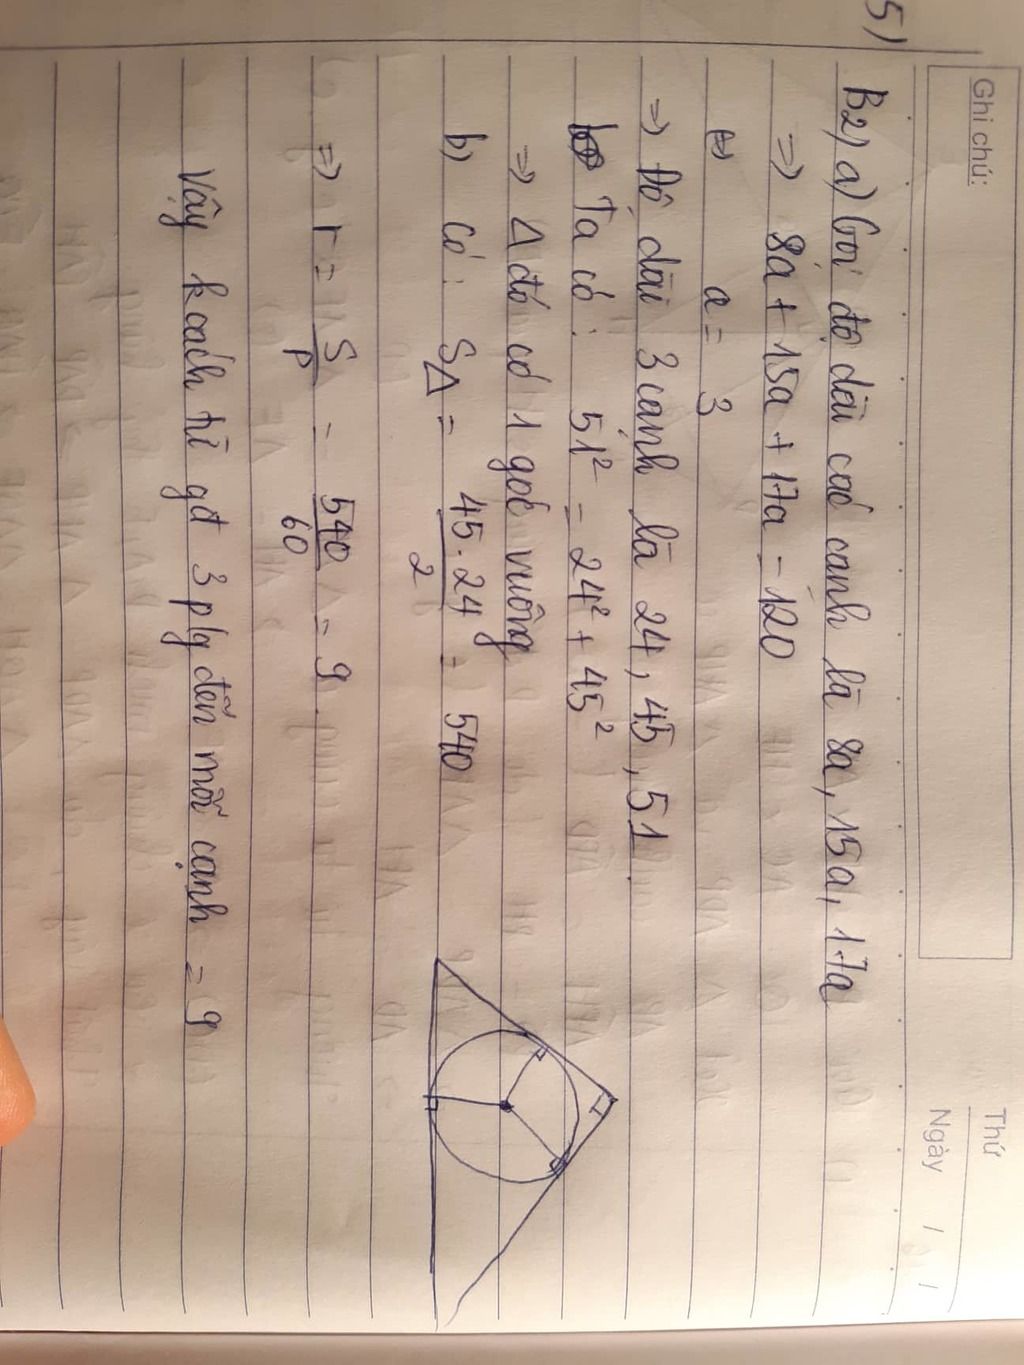 5)
Ghi chú:
Thứ
Ngày / /
B2) a) Gọi độ dài các cạnh là 8a, 15a, 17a
=> 8a + 15a + 17a = 120
<=> a = 3
=> Độ dài 3 cạnh là 24, 45, 51.
Ta có: 51² = 24² + 45²
=> Δ đó có 1 góc vuông
b) Có: SΔ = 45.24/2 = 540
=> r = S/p = 540/60 = 9.
Vậy k cách từ gđ 3 p/g đến mỗi cạnh = 9